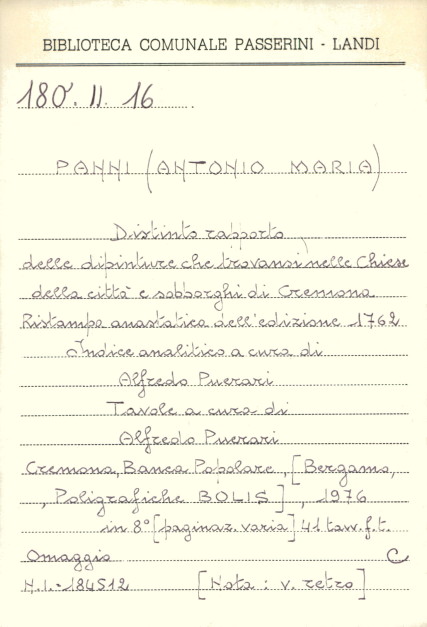 BIBLIOTECA COMUNALE PASSERINI - LANDI
180. II. 16
PANNI (ANTONIO MARIA)
Distinto rapporto
delle dipinture che trovansi nelle Chiese
della città e sobborghi di Cremona
Ristampa anastatica dell'edizione 1762
Indice analitico a cura di
Alfredo Puerari
Tavole a cura di
Alfredo Puerari
Cremona, Banca Popolare, [Bergamo,
, Poligrafiche BOLIS], 1976
in 8° [paginaz. varia] 41 tavv. f.t.
Omaggio C
N.I.-184512 [Nota : v. retro]